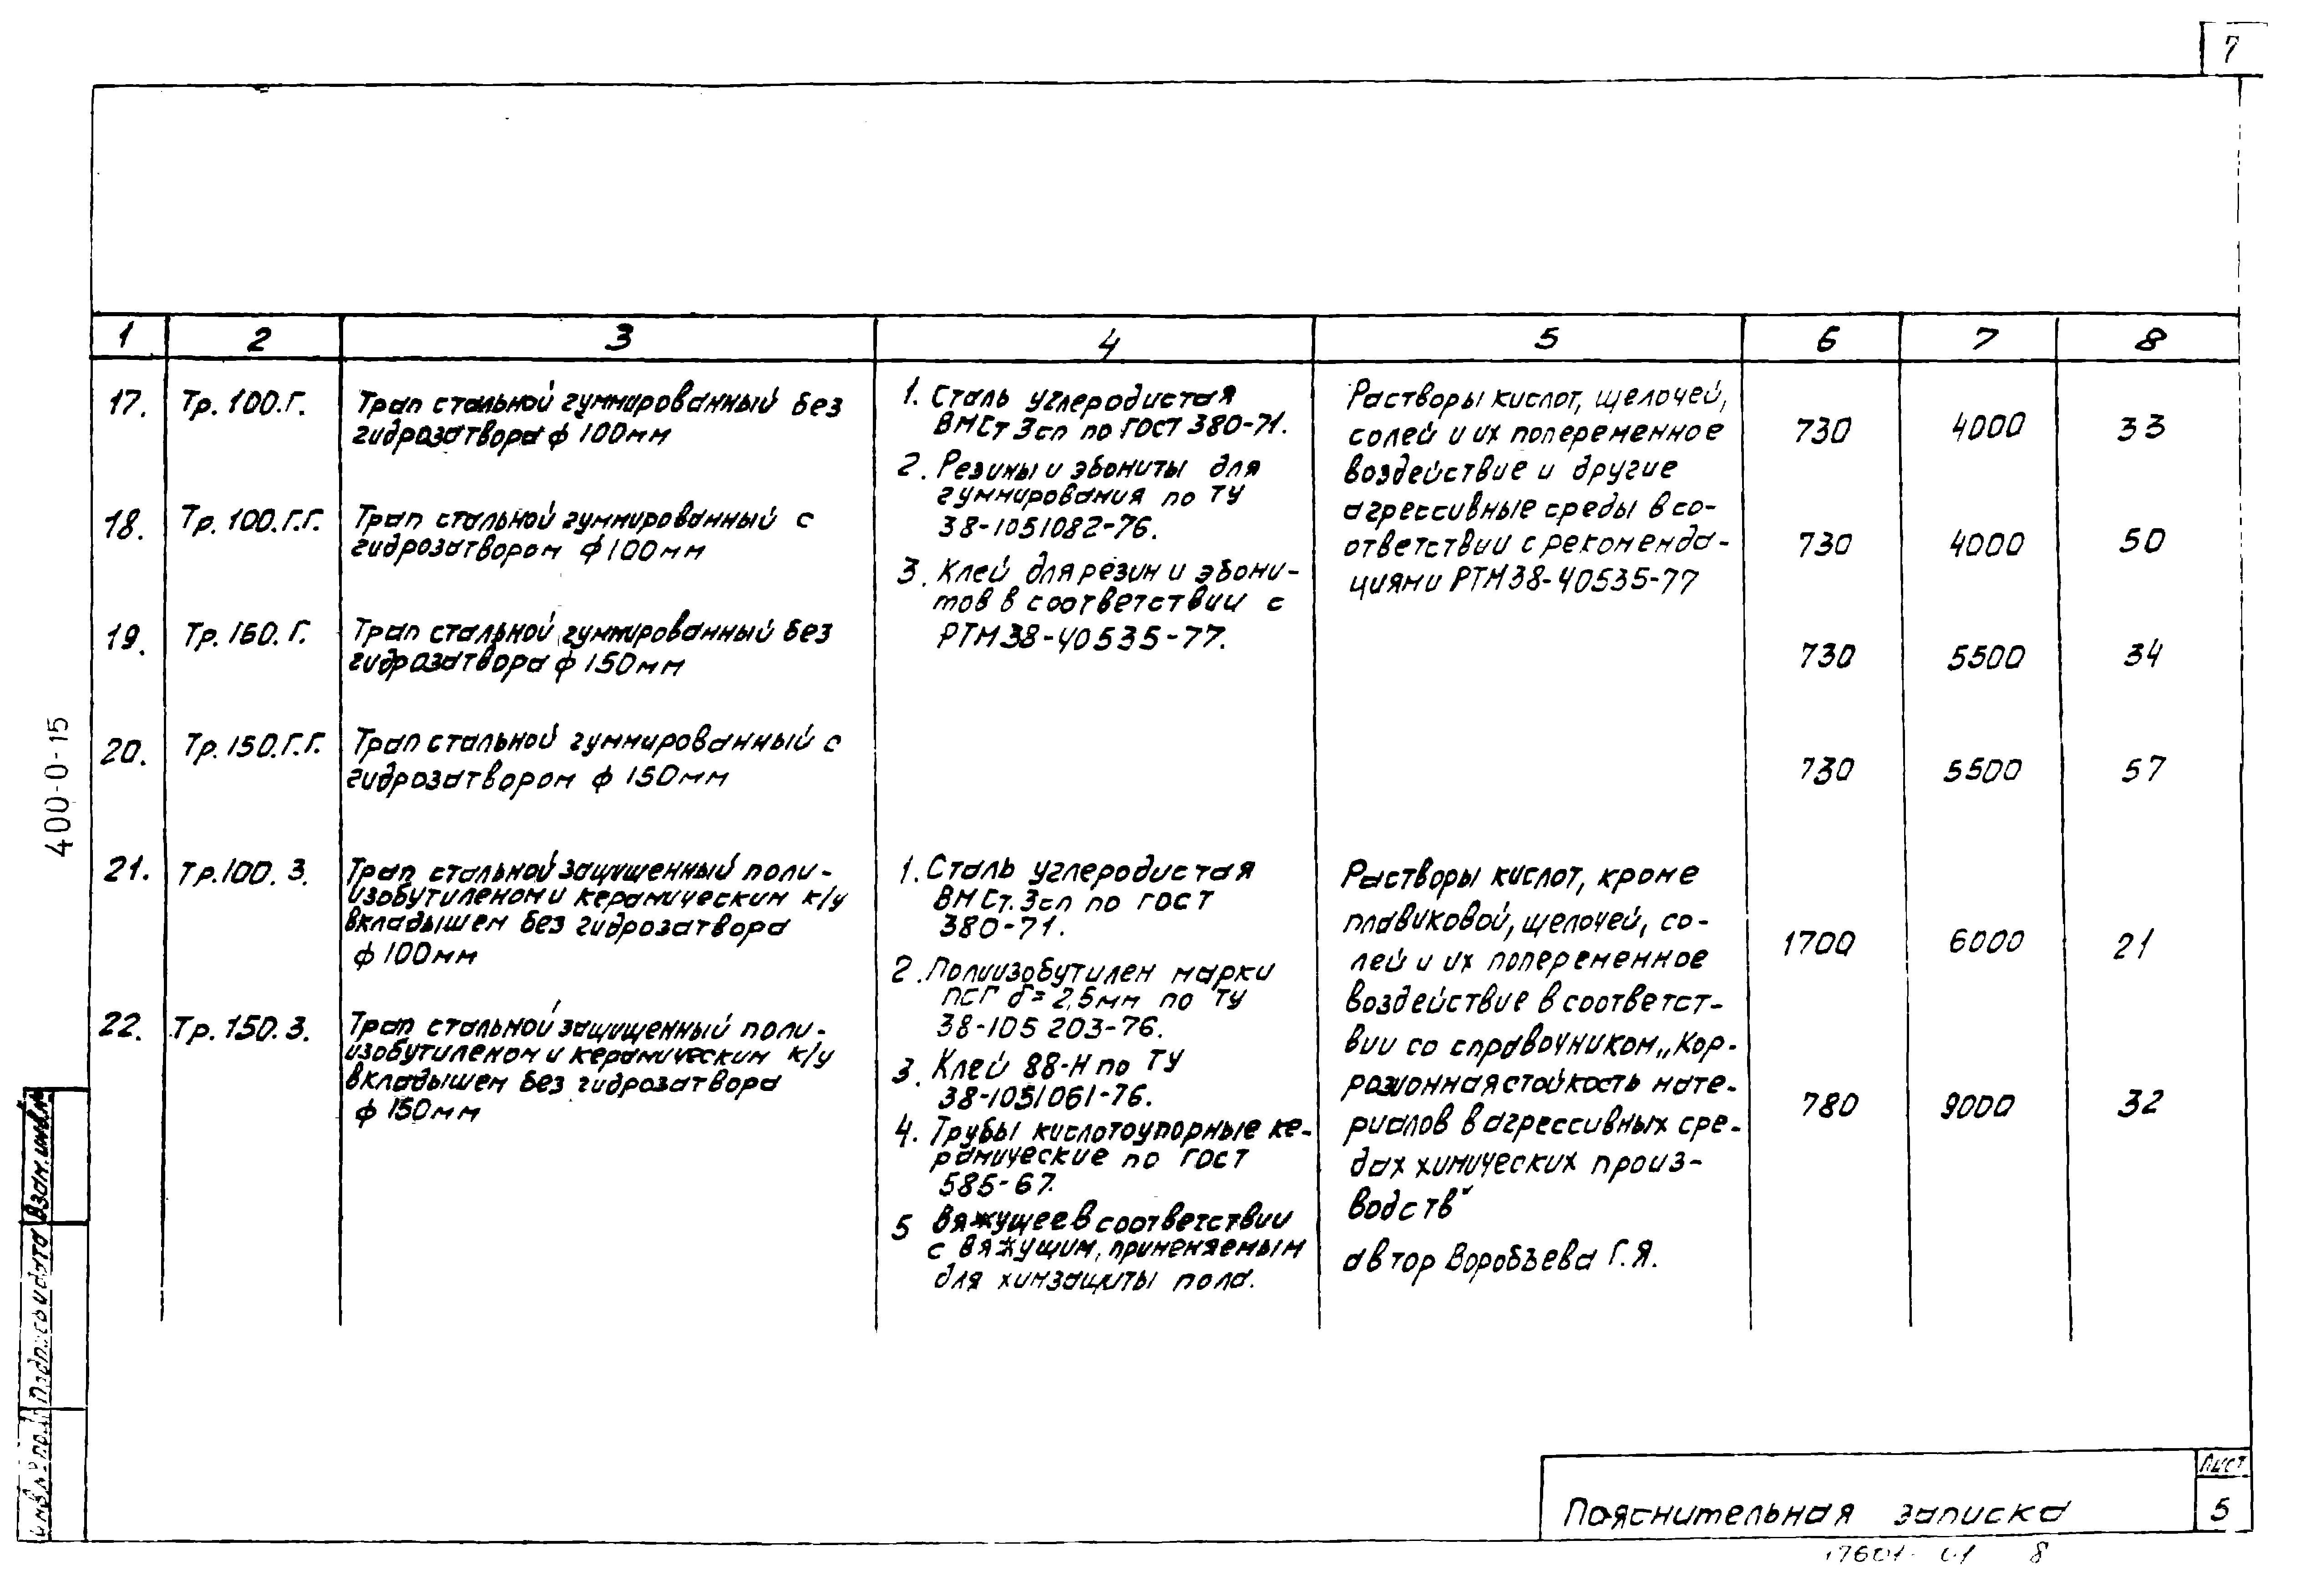 7
1 2 3 4 5 6 7 8
17. Тр. 100.Г.
Трап стальной гуммированный без
гидрозатвора ф 100мм
1. Сталь углеродистая
ВМСт 3сп по ГОСТ 380-71.
2. Резины и эбониты для
гуммирования по ТУ
38-1051082-76.
3. Клей для резин и эбони-
тов в соответствии с
РТМ 38-40535-77.
Растворы кислот, щелочей,
солей и их попеременное
воздействие и другие
агрессивные среды в со-
ответствии с рекоменда-
циями РТМ 38-40535-77
730 4000 33
18. Тр. 100.Г.Г.
Трап стальной гуммированный с
гидрозатвором ф 100мм
730 4000 50
19. Тр. 150. Г.
Трап стальной гуммированный без
гидрозатвора ф 150мм
730 5500 34
20. Тр. 150.Г.Г.
Трап стальной гуммированный с
гидрозатвором ф 150мм
730 5500 57
21. Тр.100. З.
Трап стальной защищенный поли-
изобутиленом и керамическим к/у
вкладышем без гидрозатвора
ф 100мм
1. Сталь углеродистая
ВМСт. 3сп по ГОСТ
380-71.
2. Полиизобутилен марки
ПСГ δ= 2,5мм по ТУ
38-105 203-76.
3. Клей 88-Н по ТУ
38-1051061-76.
4. Трубы кислотоупорные ке-
рамические по ГОСТ
585-67.
5 Вяжущее в соответствии
с вяжущим, применяемым
для химзащиты пола.
Растворы кислот, кроме
плавиковой, щелочей, со-
лей и их попеременное
воздействие в соответст-
вии со справочником „Кор-
розионная стойкость мате-
риалов в агрессивных сре-
дах химических произ-
водств"
автор Воробъева Г.Я.
1700 6000 21
22. Тр. 150. З.
Трап стальной защищенный поли-
изобутиленом и керамическим к/у
вкладышем без гидрозатвора
ф 150мм
780 9000 32
400-0-15
Взам. инв.№
Подпись и дата
Инв.№ подл.
Пояснительная записка
Лист
5
17601-01 8